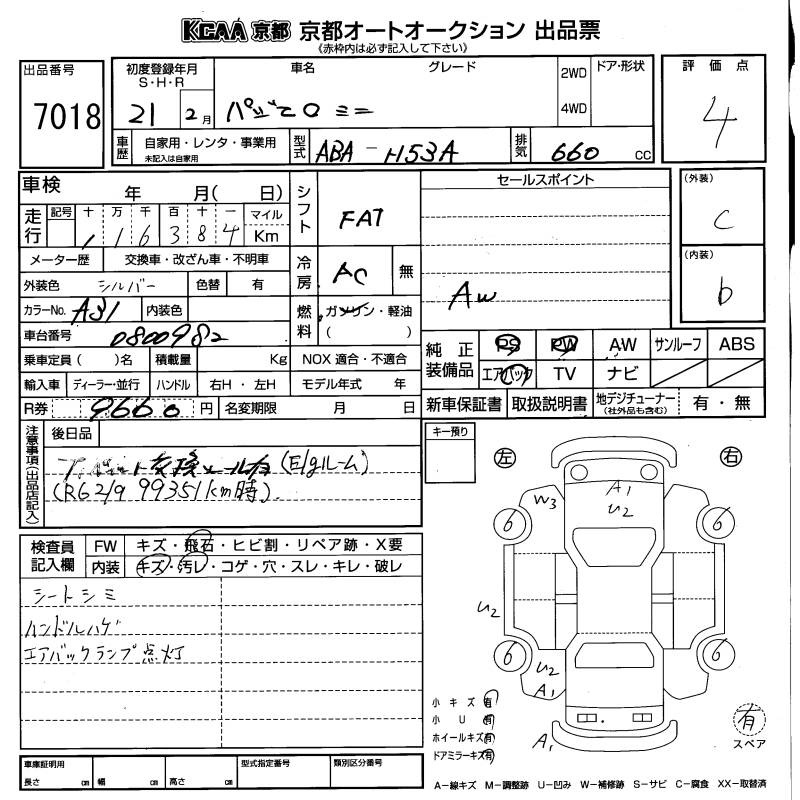 KCAA 京都 京都オートオークション 出品票
《赤枠内は必ず記入して下さい》
出品番号 初度登録年月 車名 グレード 2WD ドア・形状 評価点
S・H・R
7018 21 2月 パジェロミニ 4WD 4
車歴 自家用・レンタ・事業用 型式 ABA-H53A 排気 660 CC
未記入は自家用
車検 年 月( 日) シフト FAT セールスポイント (外装)
走行 記号 十 万 千 百 十 一 マイル C
1 1 6 3 8 4 Km
メーター歴 交換車・改ざん車・不明車 冷房 AC 無 (内装)
外装色 シルバー 色替 有 AW b
カラーNo. A31 内装色 燃料 ガソリン・軽油
車台番号 0800982 ( )
乗車定員 ( )名 積載量 Kg NOX 適合・不適合 純正装備品 PS PW AW サンルーフ ABS
輸入車 ディーラー・並行 ハンドル 右H・左H モデル年式 年 エアバック TV ナビ
R券 9660 円 名変期限 月 日 新車保証書 取扱説明書 地デジチューナー 有・無
(社外品も含む)
注意事項(出品店記入) 後日品 キー預り
交換 (E/gルーム)
(R6 2/9 99351km時)
左 右
検査員記入欄 FW キズ・飛石・ヒビ割・リペア跡・X要
内装 キズ・汚レ・コゲ・穴・スレ・キレ・破レ
シートシミ
ハンドルハゲ
エアバックランプ点灯
W3 A1
U2
6 6
U2
6 6
U2
A1
A1
小キズ 有
小U 有
ホイールキズ 有
ドアミラーキズ 有
有
スペア
車庫証明用 型式指定番号 類別区分番号
長さ cm 幅 cm 高さ cm
A−線キズ M−調整跡 U−凹み W−補修跡 S−サビ C−腐食 XX−取替済